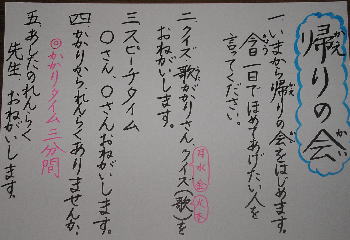 帰りの会
かえ
かい
一、いまから帰りの会をはじめます。
今日一日でほめてあげたい人を
言ってください。
二、クイズ、歌がかりさん、クイズ(歌)を
月水金
火木
おねがいします。
三、スピーチタイム
〇さん、〇さんおねがいします。
四、かかりかられんらくありませんか。
◎かかりタイム 三分間
五、あしたのれんらく
先生、おねがいします。